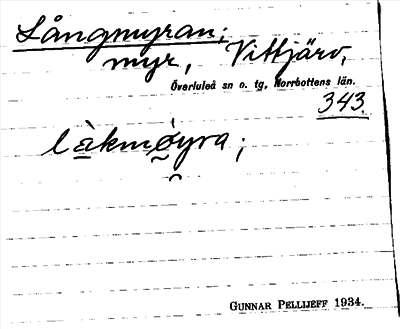 Långmyran;
myr, Vittjärv,
Överluleå sn o. tg, Norrbottens län.
343.
làkmøyra;
GUNNAR PELLIJEFF 1934.